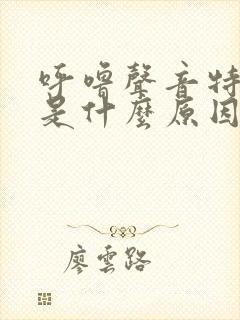 呼嚕聲音特
是什麼原因
廖雲路